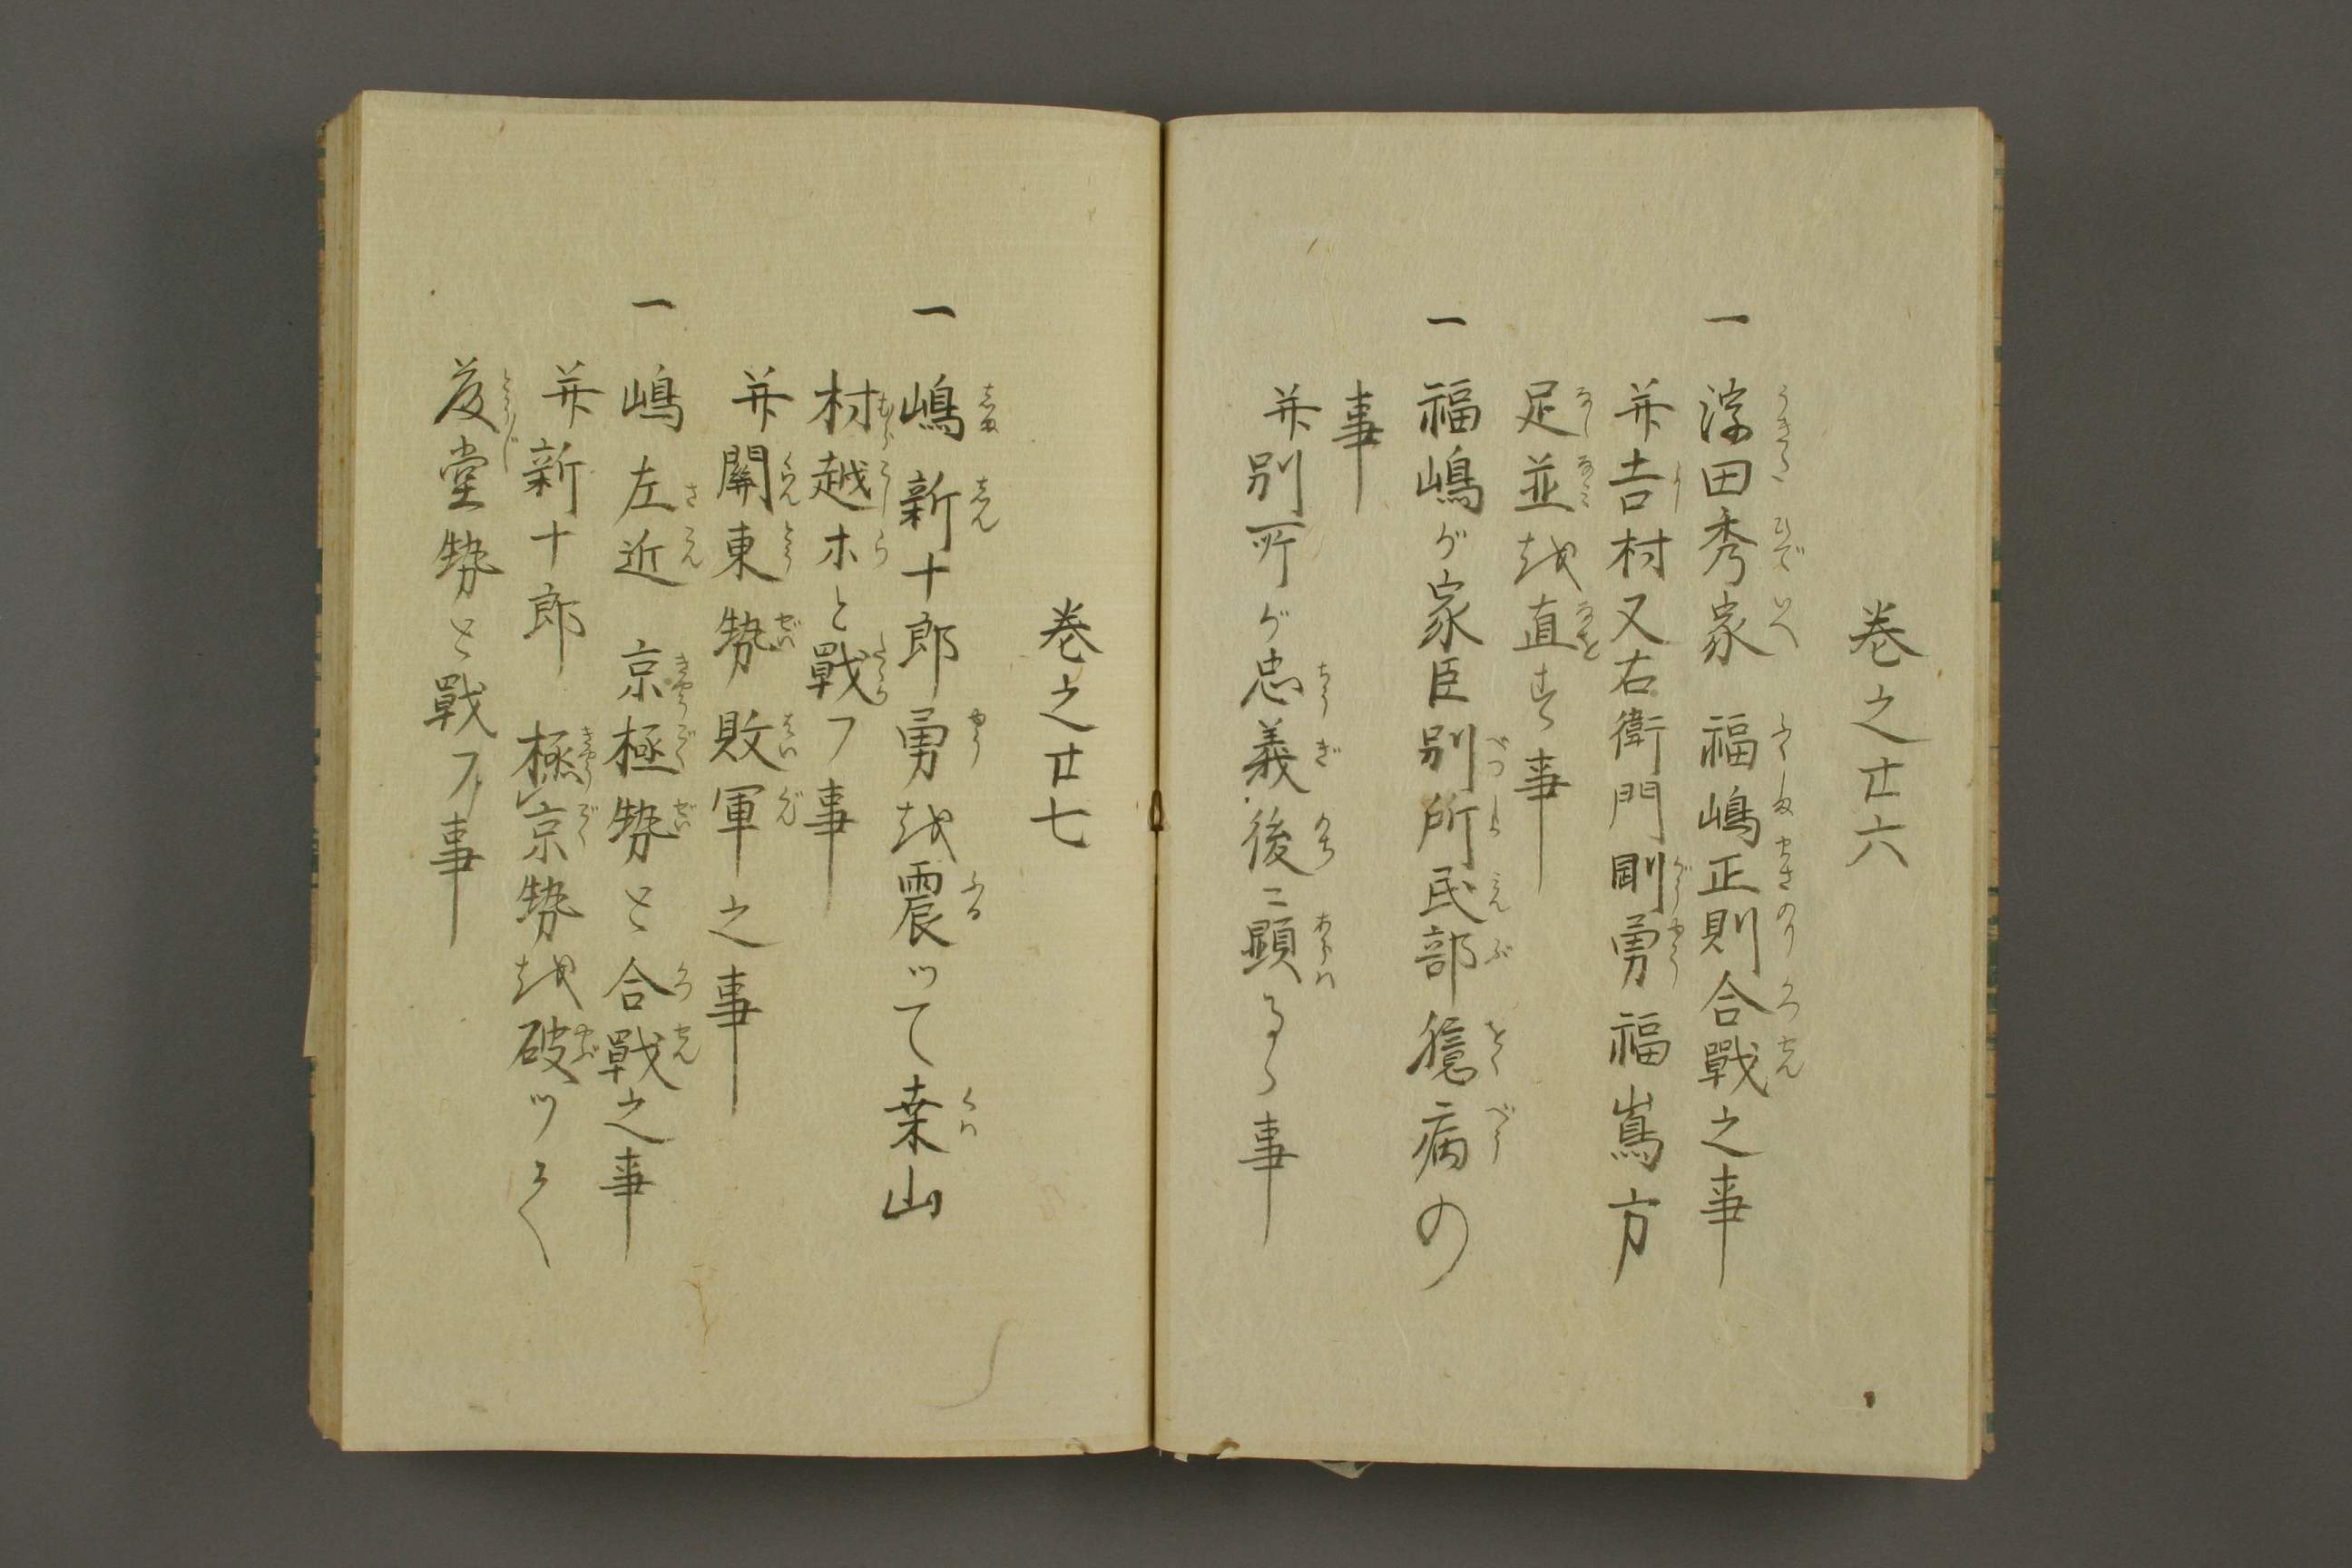 巻之廿六
一 浮田秀家 福嶋正則合戰之事
并吉村又右衛門剛勇福嶌方
足並を直す事
一 福嶋が家臣別所民部臆病の
事
并別所が忠義後ニ顕るゝ事
巻之廿七
一 嶋新十郎勇を震ッて桒山
村越ホと戰フ事
并關東勢敗軍之事
一 嶋左近 京極勢と合戰之事
并新十郎 極京勢を破ッて
藤堂勢と戰フ事